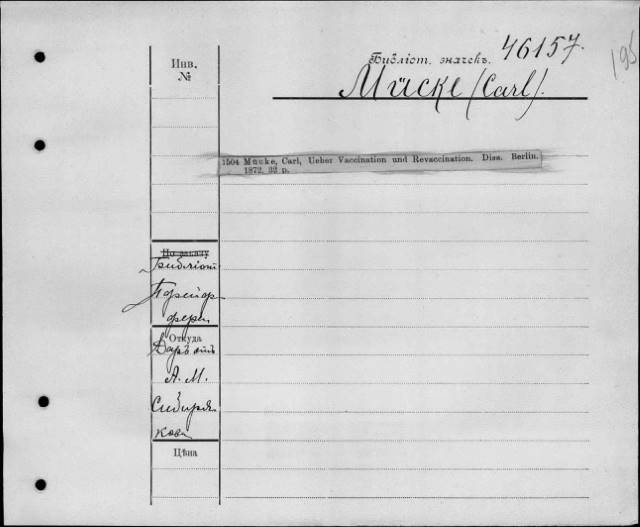 Инв.
№
Библіот. значекъ. 46157.
195
Mücke (Carl).
1504 Mücke, Carl, Ueber Vaccination und Revaccination. Diss. Berlin.
1872. 32 p.
По заказу
Библіот
Откуда
Даръ отъ
А. М.
Сибиря-
кова
Цѣна